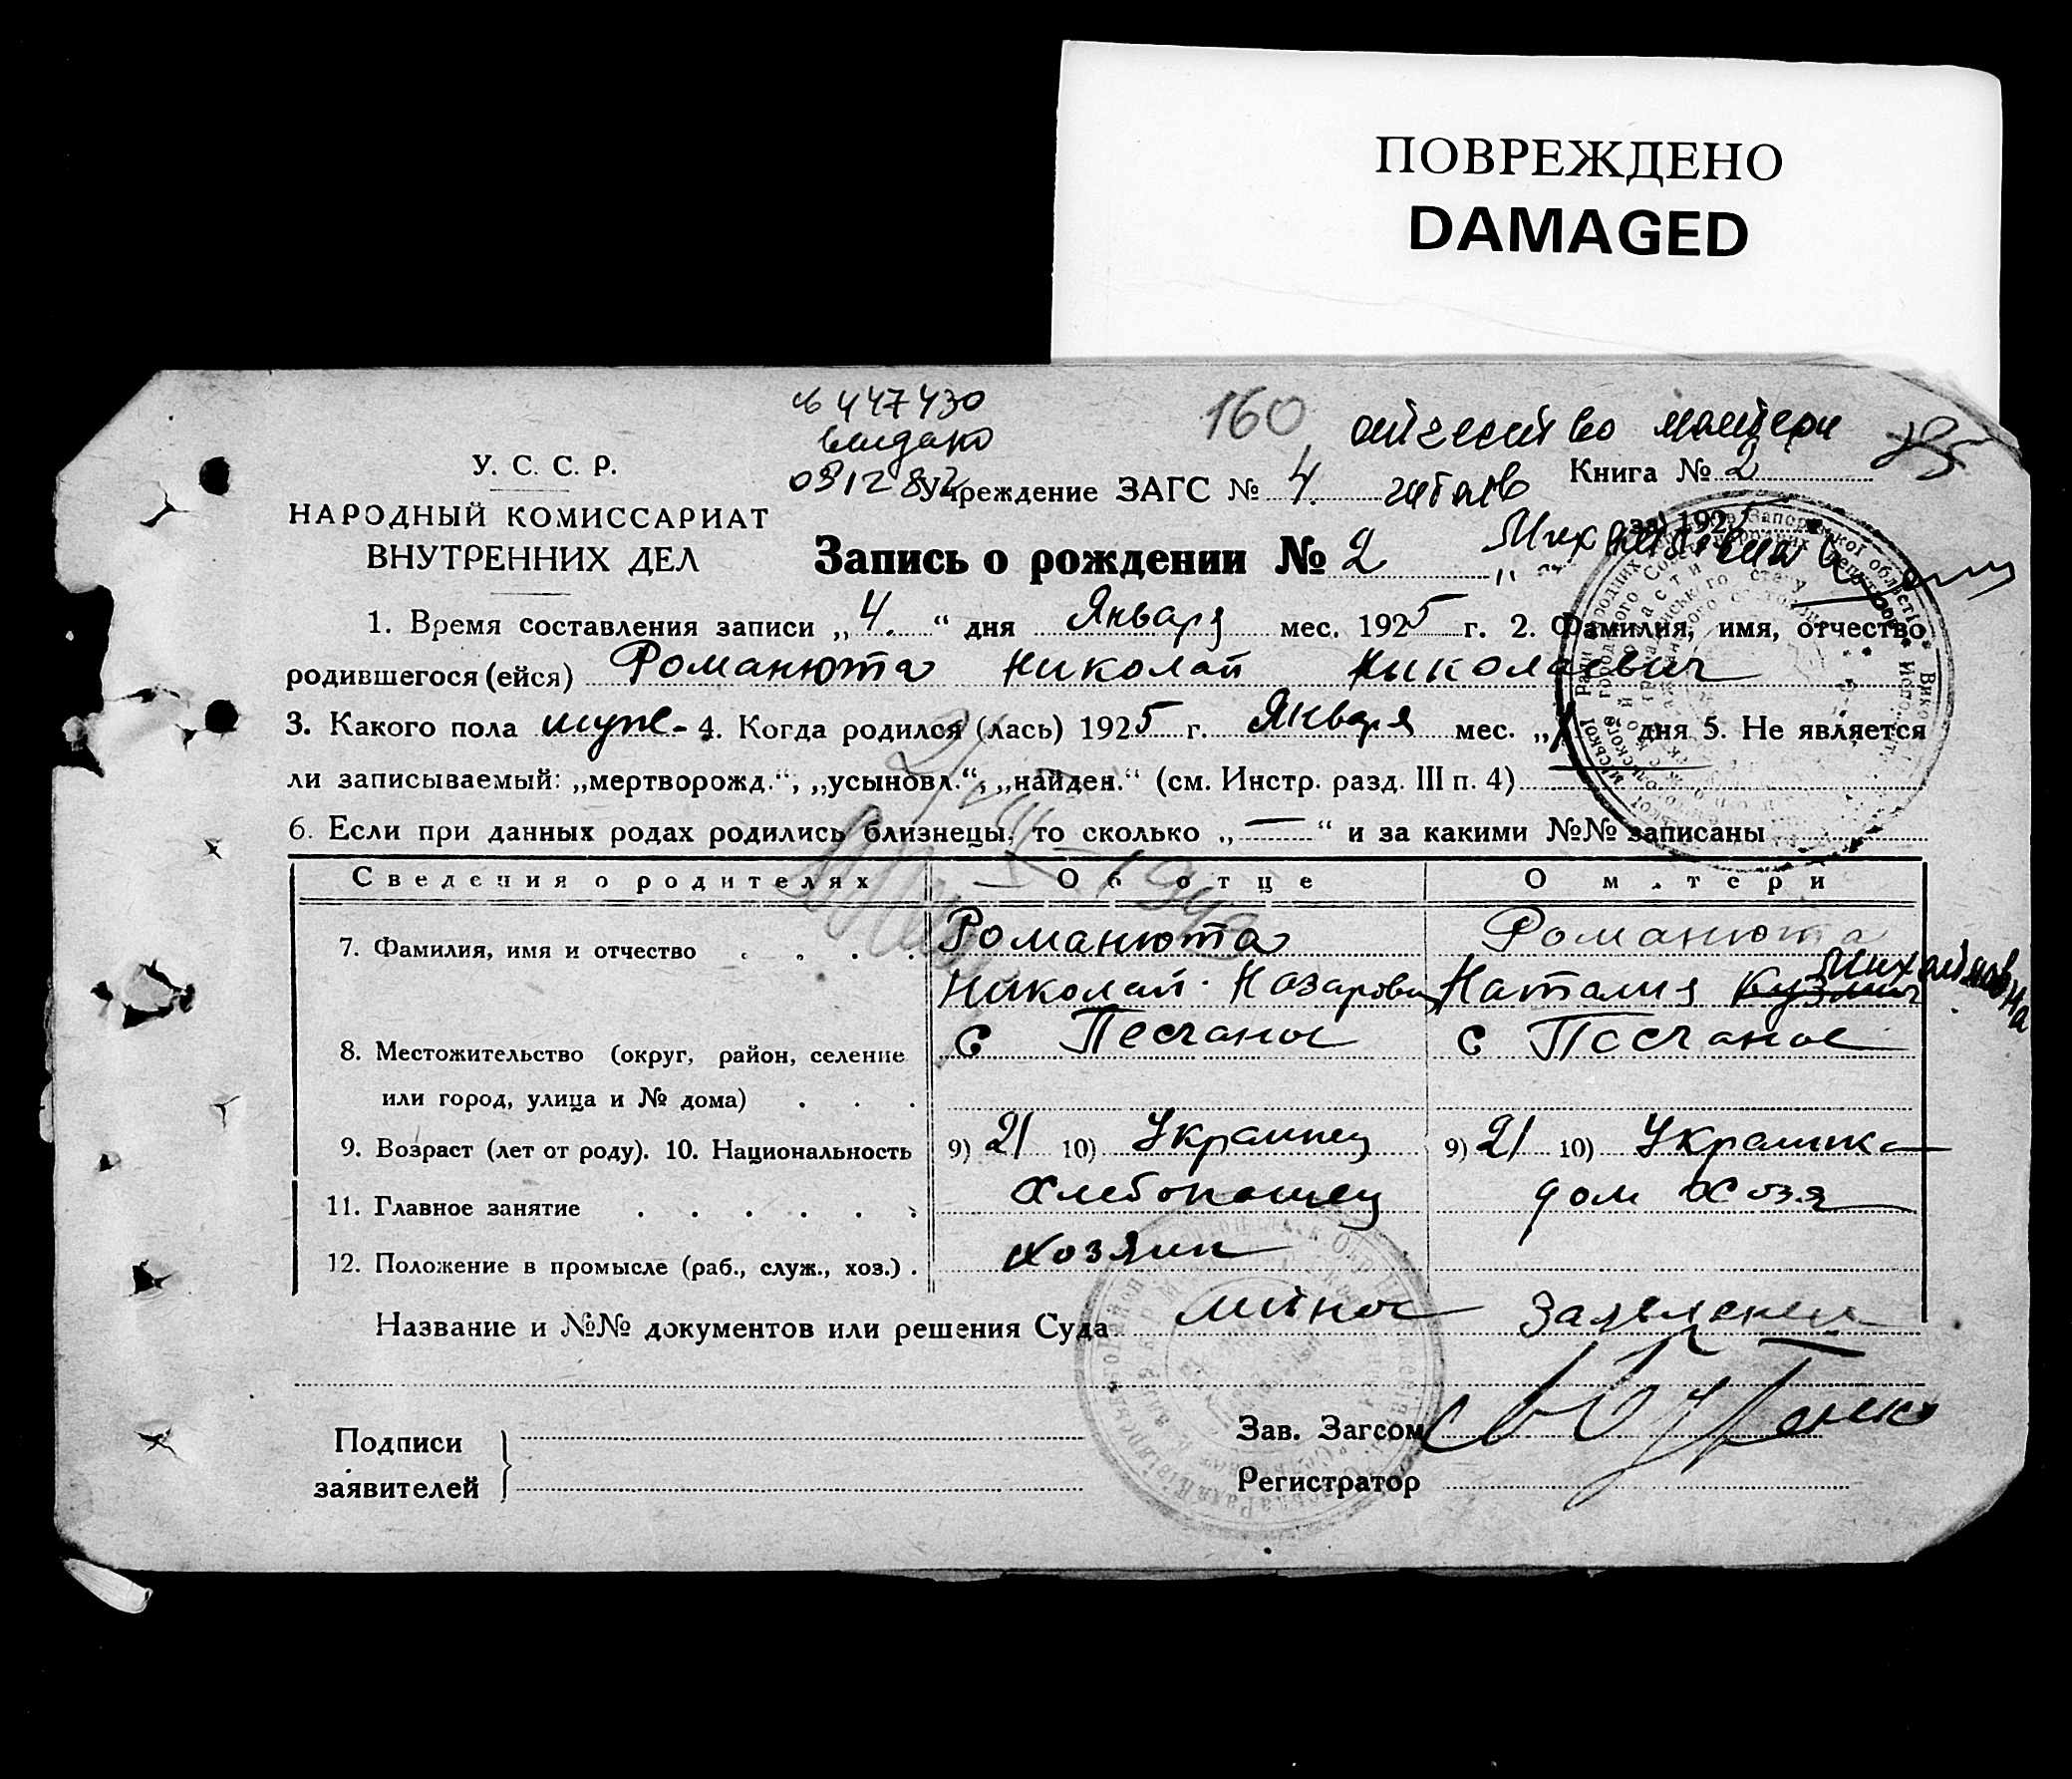 ПОВРЕЖДЕНО
DAMAGED
447430
видано
160 отчество матери
031282
У. С. С. Р.
Учреждение ЗАГС № 4. читать Книга № 2
НАРОДНЫЙ КОМИССАРИАТ
ВНУТРЕННИХ ДЕЛ
за 192
Запись о рождении № 2 Михайловна
1. Время составления записи „4.“ дня Января мес. 1925 г. 2. Фамилия, имя, отчество
родившегося (ейся) Романюта Николай Николаевич
3. Какого пола муж- 4. Когда родился (лась) 1925 г. Января мес. „1 дня 5. Не является
ли записываемый: „мертворожд.“, „усыновл.“, „найден.“ (см. Инстр. разд. III п. 4) —
6. Если при данных родах родились близнецы, то сколько „—“ и за какими №№ записаны
Сведения о родителях Об отце О матери
7. Фамилия, имя и отчество . . . . Романюта Романюта
Михайловна
Николай Назарович Наталия
8. Местожительство (округ, район, селение с Песчаное с Песчаное
или город, улица и № дома) . . .
9. Возраст (лет от роду). 10. Национальность 9) 21 10) Украинец 9) 21 10) Украинка
11. Главное занятие . . . . . . Хлебопашец дом хозя
12. Положение в промысле (раб., служ., хоз.) . Хозяин
Название и №№ документов или решения Суда заявлении
Подписи
заявителей
Зав. Загсом
Регистратор